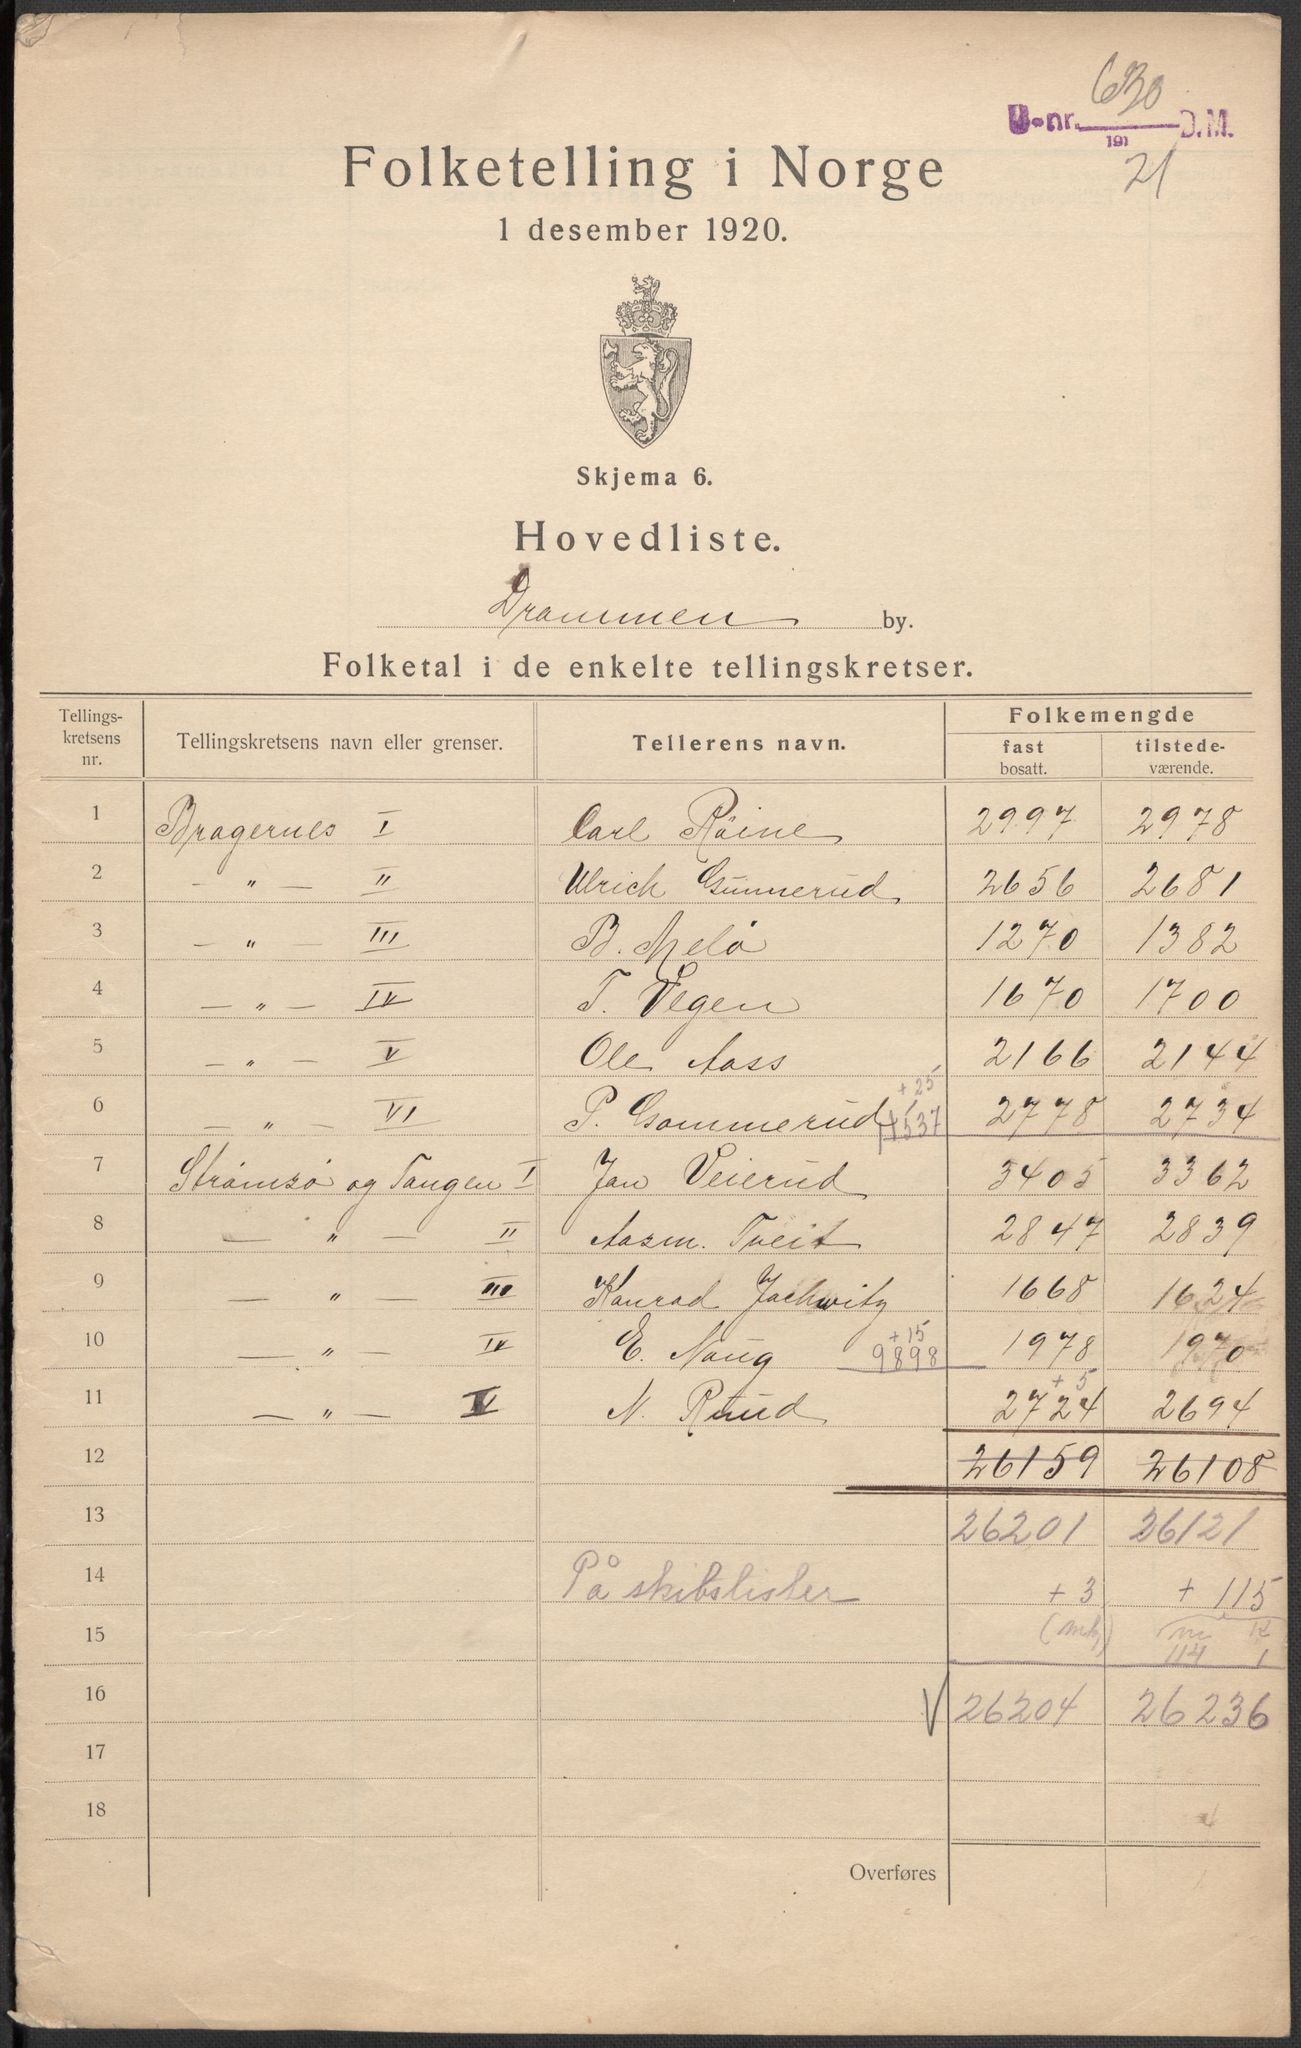 630
U-nr. D.M.
191
21
Folketelling i Norge
1 desember 1920.
Skjema 6.
Hovedliste.
Drammen by.
Folketal i de enkelte tellingskretser.
Tellings-kretsens nr. Tellingskretsens navn eller grenser. Tellerens navn. Folkemengde
fast bosatt. tilstede-værende.
1 Bragernes I Carl Röine 2997 2978
2 — " — II Ulrich Gunnerud 2656 2681
3 — " III B. Melö 1270 1382
4 — " — IV T. Vegen 1670 1700
5 — " — V Ole Aass 2166 2144
+ 25
6 — " — VI P. Gommerud 13537 2778 2734
7 Strömsö og Tangen I Jan Veierud 3405 3362
8 — " — II Aasm. Tveit 2847 2839
9 — " — III Konrad Jachwitz 1668 1624
+ 15
10 — " — IV E. Naug 9898 1978 1970
+ 5
11 — " — V N. Ruud 2724 2694
12 26159 26108
13 26201 26121
14 På skibslister + 3 + 115
15 (mk) m k
114 1
16 V 26204 26236
17
18
Overføres